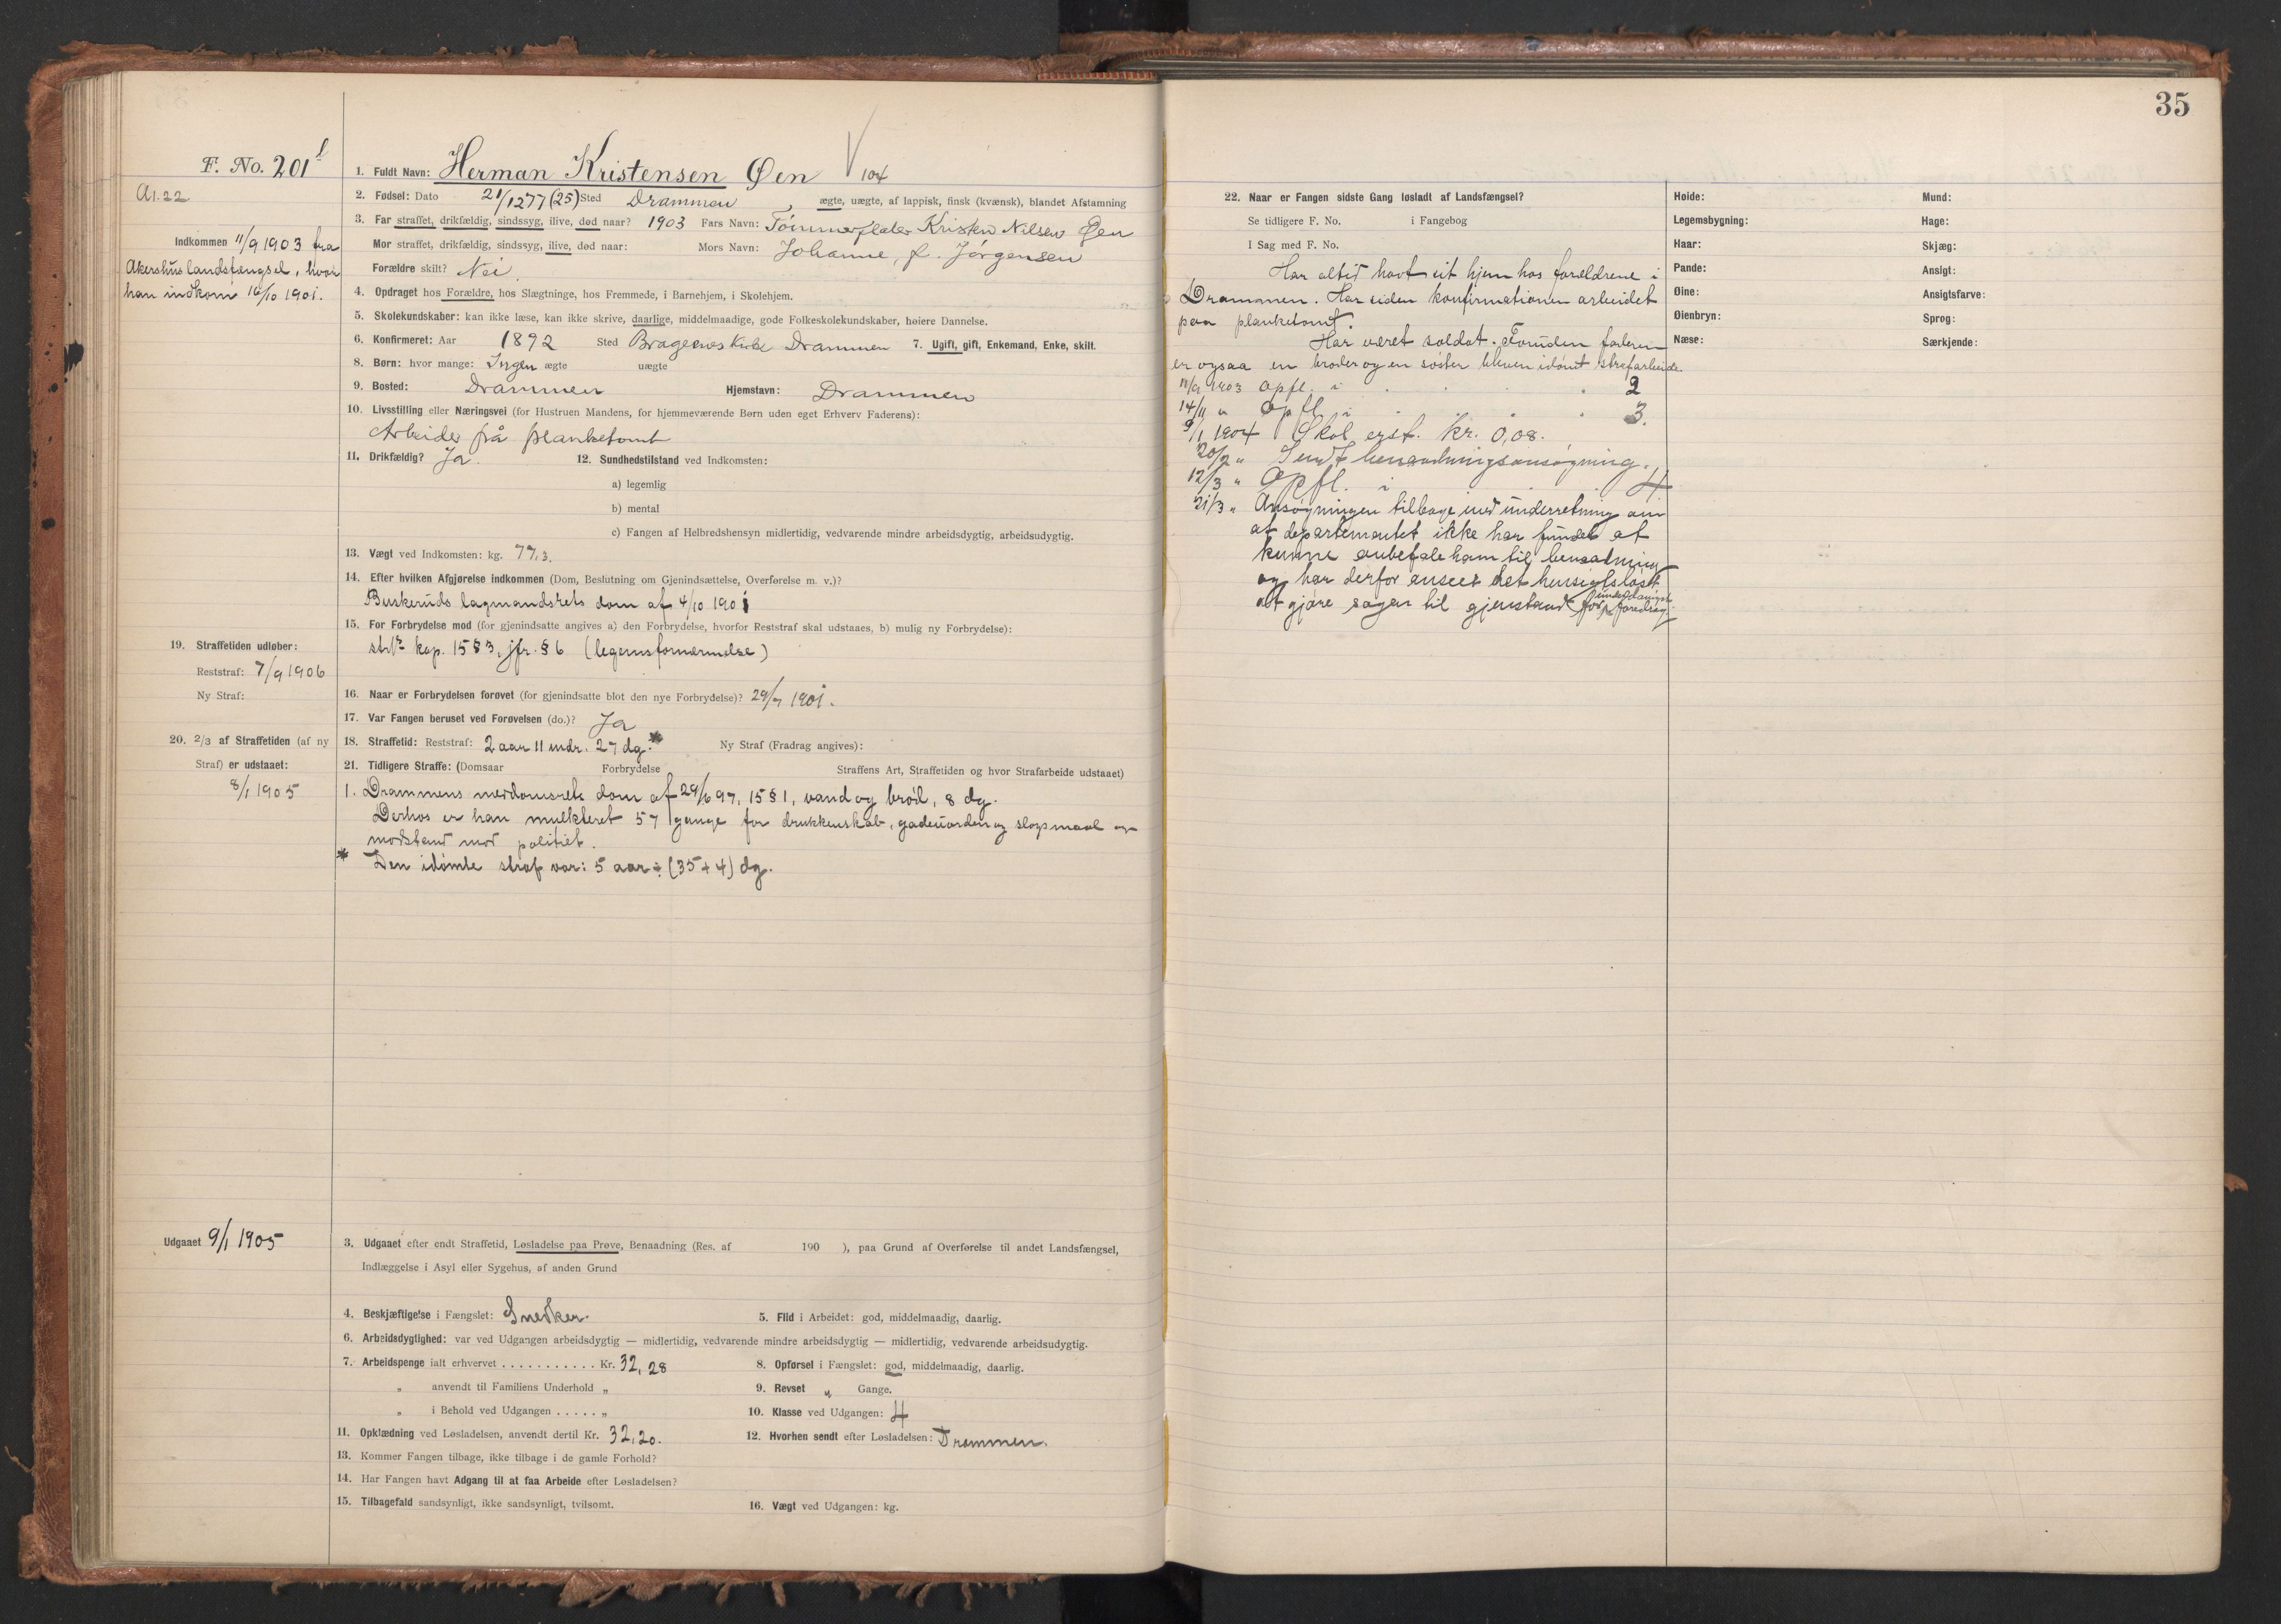 35
F. No. 201 f
A1.22
Indkommen 11/9 1903 fra
Akershus landsfængsel, hvor
han indkom 16/10 1901.
1. Fuldt Navn: Herman Kristensen Øen V 104
2. Fødsel: Dato 21/12 77 (25) Sted Drammen, ægte, uægte, af lappisk, finsk (kvænsk), blandet Afstamning
3. Far straffet, drikfældig, sindssyg, ilive, død naar? 1903 Fars Navn: Tømmerfløter Kristen Nilsen Øen
Mor straffet, drikfældig, sindssyg, ilive, død naar: Mors Navn: Johanne, f. Jørgensen
Forældre skilt? Nei.
4. Opdraget hos Forældre, hos Slægtninge, hos Fremmede, i Barnehjem, i Skolehjem.
5. Skolekundskaber: kan ikke læse, kan ikke skrive, daarlige, middelmaadige, gode Folkeskolekundskaber, høiere Dannelse.
6. Konfirmeret: Aar 1892 Sted Bragernes Kirke Drammen 7. Ugift, gift, Enkemand, Enke, skilt.
8. Børn: hvor mange: Ingen ægte uægte
9. Bosted: Drammen Hjemstavn: Drammen
10. Livsstilling eller Næringsvei (for Hustruen Mandens, for hjemmeværende Børn uden eget Erhverv Faderens):
Arbeider på planketomt
11. Drikfældig? Ja. 12. Sundhedstilstand ved Indkomsten:
a) legemlig
b) mental
c) Fangen af Helbredshensyn midlertidig, vedvarende mindre arbeidsdygtig, arbeidsudygtig.
13. Vægt ved Indkomsten: kg. 77,3.
14. Efter hvilken Afgjørelse indkommen (Dom, Beslutning om Gjenindsættelse, Overførelse m. v.)?
Buskeruds lagmandsrets dom af 4/10 1901
15. For Forbrydelse mod (for gjenindsatte angives a) den Forbrydelse, hvorfor Reststraf skal udstaaes, b) mulig ny Forbrydelse):
kap. 15 § 3, jfr. § 6 (legemsfornærmelse)
16. Naar er Forbrydelsen forøvet (for gjenindsatte blot den nye Forbrydelse)? 29/7 1901.
17. Var Fangen beruset ved Forøvelsen (do.)? Ja
18. Straffetid: Reststraf: 2 aar 11 mdr. 27 dg. * Ny Straf (Fradrag angives):
19. Straffetiden udløber:
Reststraf: 7/9 1906
Ny Straf:
20. 2/3 af Straffetiden (af ny
Straf) er udstaaet:
8/1 1905
21. Tidligere Straffe: (Domsaar Forbrydelse Straffens Art, Straffetiden og hvor Strafarbeide udstaaet)
1. Drammens meddomsrets dom af 29/6 97, 15 § 1, vand og brød, 8 dg.
Derhos er han mulkteret 57 gange for drukkenskab, gadeuorden og slagsmaal og
modstand mod politiet.
* Den idømte straf var: 5 aar ÷ (35 + 4) dg.
Udgaaet 9/1 1905
3. Udgaaet efter endt Straffetid, Løsladelse paa Prøve, Benaadning (Res. af 190 ), paa Grund af Overførelse til andet Landsfængsel,
Indlæggelse i Asyl eller Sygehus, af anden Grund
4. Beskjæftigelse i Fængslet: Snedker. 5. Flid i Arbeidet: god, middelmaadig, daarlig.
6. Arbeidsdygtighed: var ved Udgangen arbeidsdygtig — midlertidig, vedvarende mindre arbeidsdygtig — midlertidig, vedvarende arbeidsudygtig.
7. Arbeidspenge ialt erhvervet . . . . . . . . . . . Kr. 32,28 8. Opførsel i Fængslet: god, middelmaadig, daarlig.
„ anvendt til Familiens Underhold „ 9. Revset „ Gange.
„ i Behold ved Udgangen . . . . . „ 10. Klasse ved Udgangen: 4
11. Opklædning ved Løsladelsen, anvendt dertil Kr. 32,20. 12. Hvorhen sendt efter Løsladelsen: Drammen.
13. Kommer Fangen tilbage, ikke tilbage i de gamle Forhold?
14. Har Fangen havt Adgang til at faa Arbeide efter Løsladelsen?
15. Tilbagefald sandsynligt, ikke sandsynligt, tvilsomt. 16. Vægt ved Udgangen: kg.
22. Naar er Fangen sidste Gang løsladt af Landsfængsel?
Se tidligere F. No. i Fangebog
I Sag med F. No.
Har altid havt sit hjem hos forældrene i
Drammen. Har siden konfirmationen arbeidet
paa planketomt.
Har været soldat. Foruden faderen
er ogsaa en broder og en søster bleven idømt strafarbeide.
11/9 1903 Opfl. i . . . 2
14/11 „ Opfl. i . . . 3.
9/1 1904 Skol. erst. kr. 0,08.
20/2 „ Sendt benaadningsansøgning.
12/3 „ Opfl. i . . . 4
21/3 „ Ansøgningen tilbage med underretning om
at departementet ikke har fundet at
kunne anbefale ham til benaadning
og har derfor anseet det hensigtsløst
at gjøre sagen til gjenstand for underdanigst foredrag.
Høide:
Legemsbygning:
Haar:
Pande:
Øine:
Øienbryn:
Næse:
Mund:
Hage:
Skjæg:
Ansigt:
Ansigtsfarve:
Sprog:
Særkjende: